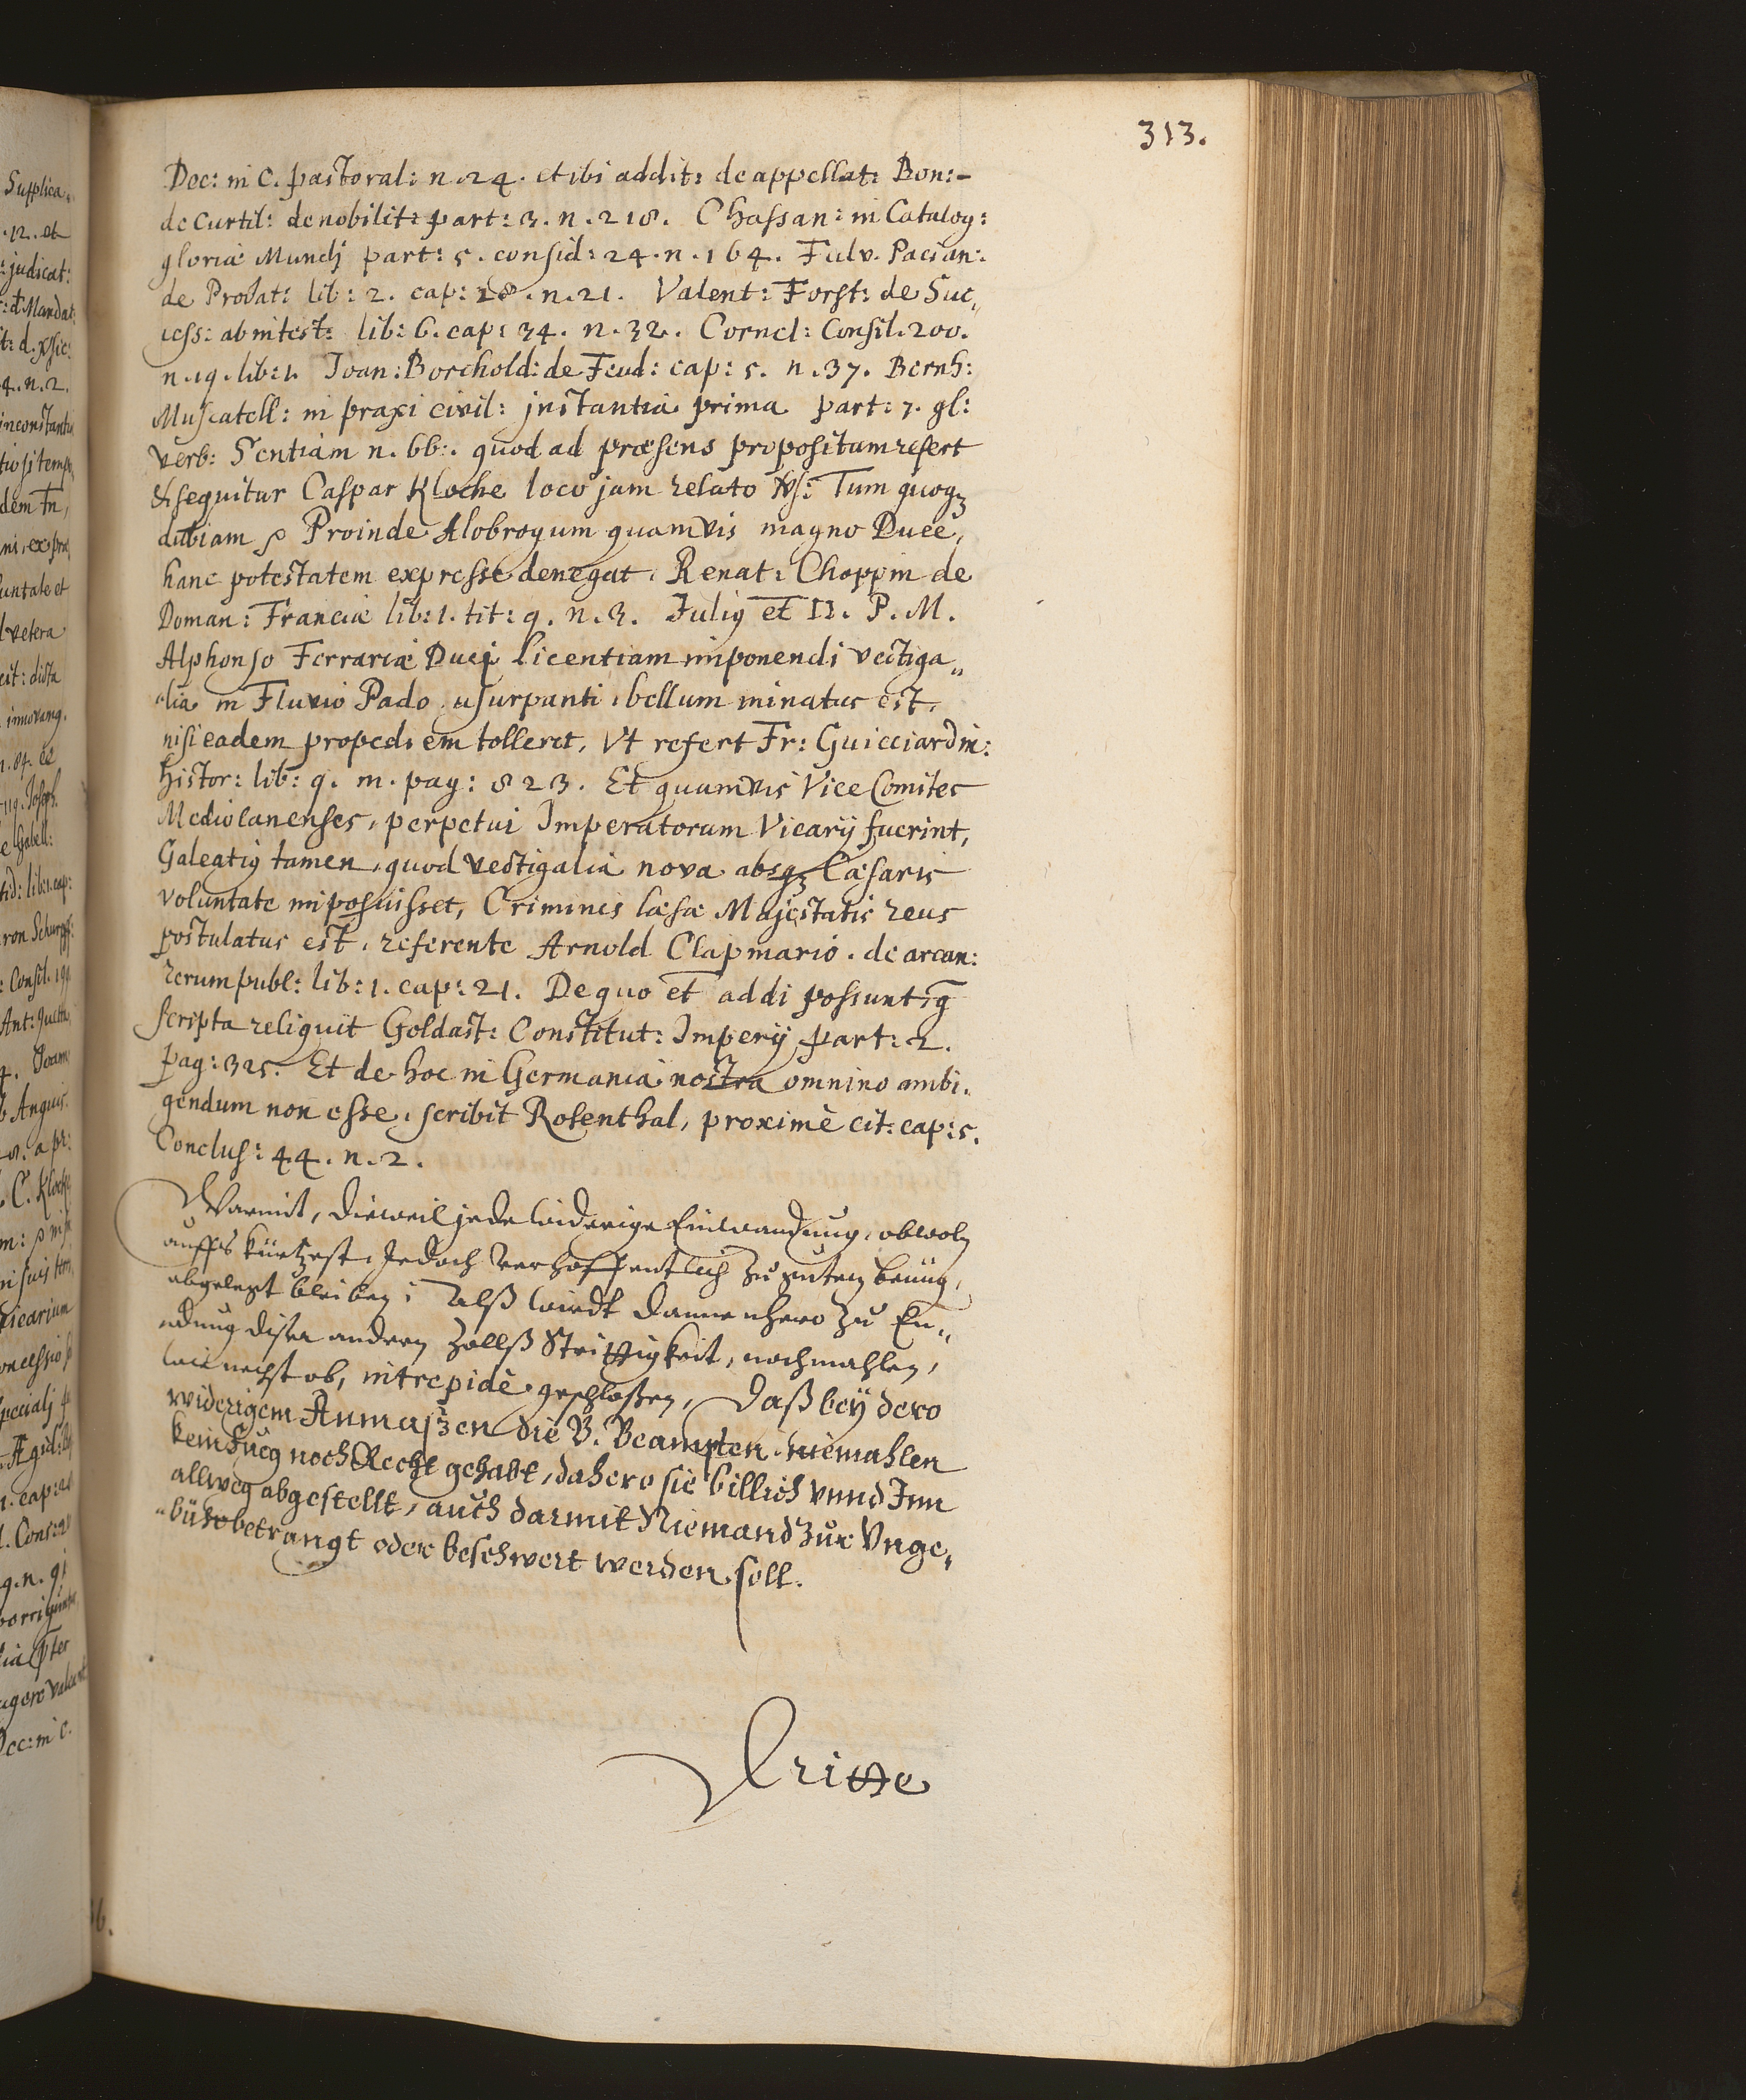 313.
Doc: in C. pastoral: n. 24. et ibi addit: de appellat: Bon:-
de Curtil: de nobilit: part: 3. n. 218. Chassan: in Catalog:
gloriæ Mundj part: 5. consid: 24. n. 164. Fulv. Pacian:
de Probat: lib: 2. cap: 28. n. 21. Valent: Forst: de Suc„
cess: ab intest: lib: 6. cap: 34. n. 32. Cornel: Consil. 200.
n. 19. lib: 1. Joan: Borchold: de Feud: cap: 5. n. 37. Bernh:
Muscatell: in praxi civil: instantia prima part: 7. gl:
verb: Sentiam n. 66:. quod ad præsens propositum refert
& sequitur Caspar Klocke loco jam relato vs: Tum quoqz
dubiam Proinde Alobrogum quamvis magno Duce,
hanc potestatem expresse denegat. Renat: Choppin de
Doman: Franciæ lib: 1. tit: 9. n. 3. Juliy et II. P. M.
Alphonso Ferrariæ Ducj licentiam imponendi vectiga„
„lia in Fluvio Pado usurpanti, bellum minatus est,
nisi eadem propediem tolleret, vt refert Fr: Guicciardin:
Histor: lib: 9. m. pag: 823. Et quamvis Vice Comites
Mediolanenses, perpetui Imperatorum Vicarij fuerint,
Galeatiy tamen, quod vectigalia nova absqz Cæsaris
voluntate imposuisset, Criminis læsæ Majestatis reus
postulatus est, referente Arnold Clapmario. de arcan:
rerumpubl: lib: 1. cap: 21. De quo et addi possunt, q̄
scripta reliquit Goldast: Constitut: Imperij part: 2.
pag: 325. Et de hoc in Germania nostra omnino ambi.
gendum non esse, scribit Rosenthal, proximè cit: cap: 5.
Conclus: 44. n. 2.
Warmit, dieweil jede widerige Einwandung, obwoln
auffs kürtzest, Jedoch verhoffentlich zu guten benüg,
abgelegt bleiben; Alß wirdt dannenhero zu En„
„dung diser andern Zollß Strittigkeit, nochmahlen,
wie nechst ob, intrepidè geschloßen, Daß bey dero
widerigem Anmaßen die B. Beampten niemahlen
kein Fueg noch Recht gehabt, dahero sie billich vnnd Inn
allweg abgestellt, auch darmit Niemand zur Vnge„
„bühr betrangt oder beschwert werden soll.
Dritte